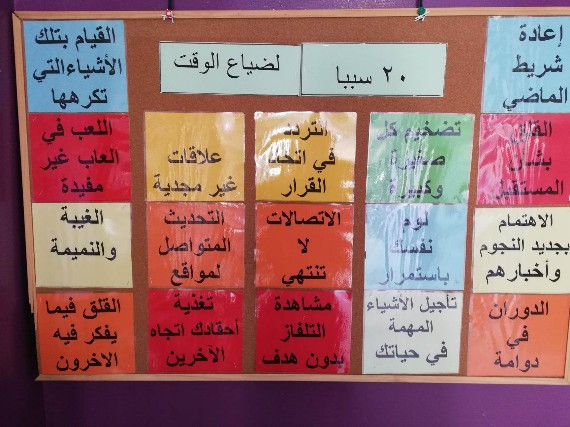 ٢٠ سببا
لضياع الوقت
إعادة
شريط
الماضي
القيام بتلك
الأشياء التي
تكرهها
القلق
بشأن
المستقبل
تضخيم كل
صغيرة
وكبيرة
التردد
في اتخاذ
القرار
علاقات
غير مجدية
اللعب في
العاب غير
مفيدة
الاهتمام
بجديد النجوم
وأخبارهم
لوم
نفسك
باستمرار
الاتصالات
لا
تنتهي
التحديث
المتواصل
لمواقع
الغيبة
والنميمة
الدوران
في
دوامة
تأجيل الأشياء
المهمة
في حياتك
مشاهدة
التلفاز
بدون هدف
تغذية
أحقادك اتجاه
الآخرين
القلق فيما
يفكر فيه
الاخرون